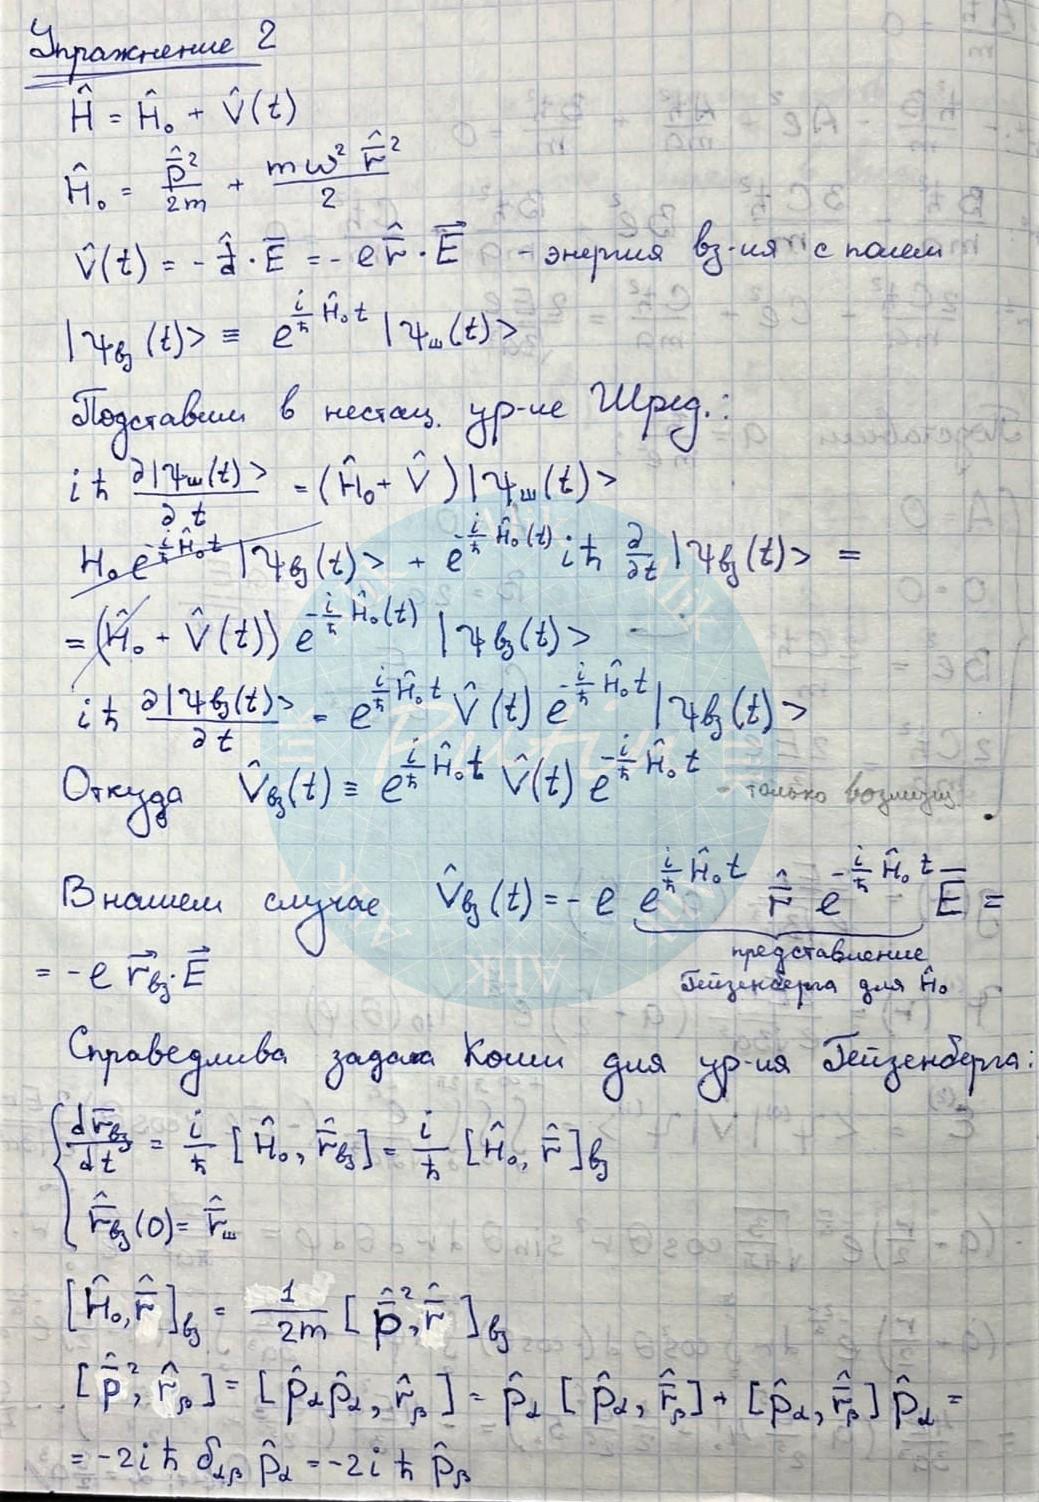 Упражнение 2
Ĥ = Ĥ₀ + V̂(t)
Ĥ₀ = p̂²/2m + mω² r̂²/2
V̂(t) = - d̂·E̅ = - e r̂·E⃗ - энергия вз-ия с полем
|ψвз(t)> ≡ e^{i/ħ Ĥ₀t} |ψш(t)>
Подставим в нестац. ур-ие Шред.:
iħ ∂|ψш(t)>/∂t = (Ĥ₀ + V̂)|ψш(t)>
H₀ e^{-i/ħ Ĥ₀t} |ψвз(t)> + e^{-i/ħ Ĥ₀(t)} iħ ∂/∂t |ψвз(t)> =
= (Ĥ₀ + V̂(t)) e^{-i/ħ Ĥ₀(t)} |ψвз(t)>
iħ ∂|ψвз(t)>/∂t = e^{i/ħ Ĥ₀t} V̂(t) e^{-i/ħ Ĥ₀t} |ψвз(t)>
Откуда V̂вз(t) ≡ e^{i/ħ Ĥ₀t} V̂(t) e^{-i/ħ Ĥ₀t} - только возмущ.
В нашем случае V̂вз(t) = - e e^{i/ħ Ĥ₀t} r̂ e^{-i/ħ Ĥ₀t} E̅ =
представление
Гейзенберга для Ĥ₀
= - e r⃗вз·E⃗
Справедлива задача Коши для ур-ия Гейзенберга:
{ dr̂вз/dt = i/ħ [Ĥ₀, r̂вз] = i/ħ [Ĥ₀, r̂]вз
r̂вз(0) = r̂ш
[Ĥ₀, r̂]вз = 1/2m [p̂², r̂]вз
[p̂², r̂β] = [p̂α p̂α, r̂β] = p̂α [p̂α, r̂β] + [p̂α, r̂β] p̂α =
= -2iħ δαβ p̂α = -2iħ p̂β